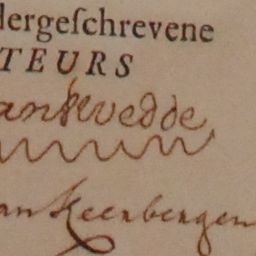 dergeſchrevene
TEURS
ankevedde
an Keerbergen